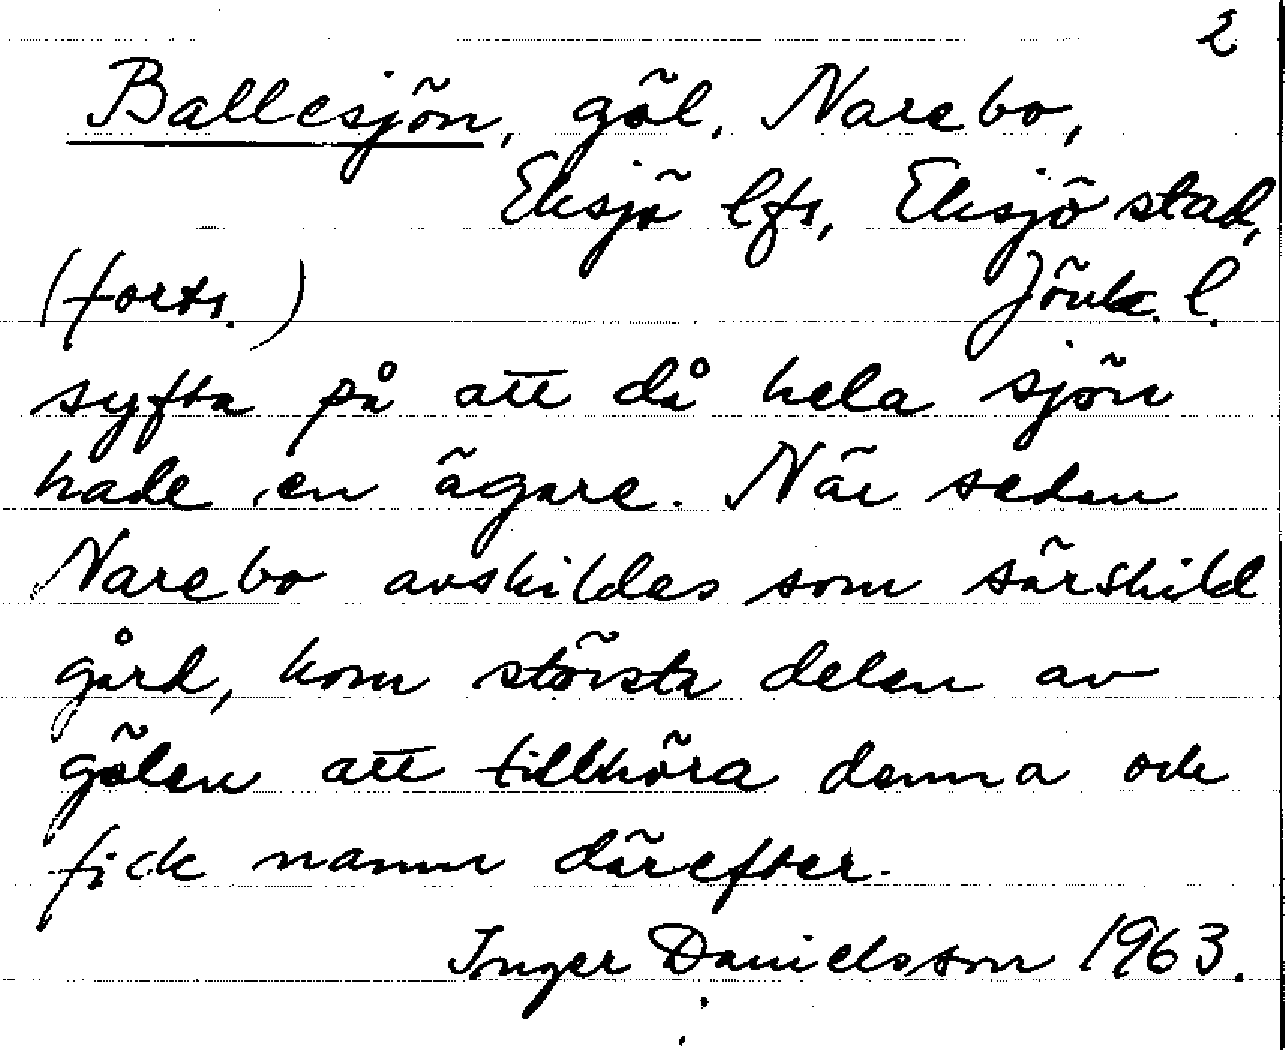 2
Ballesjön, göl, Narebo,
Eksjö lfs, Eksjö stad,
(forts.) Jönk. l.
syfta på att då hela sjön
hade en ägare. När sedan
Narebo avskildes som särskild
gård, kom största delen av
gölen att tillhöra denna och
fick namn därefter.
Inger Danielsson 1963.